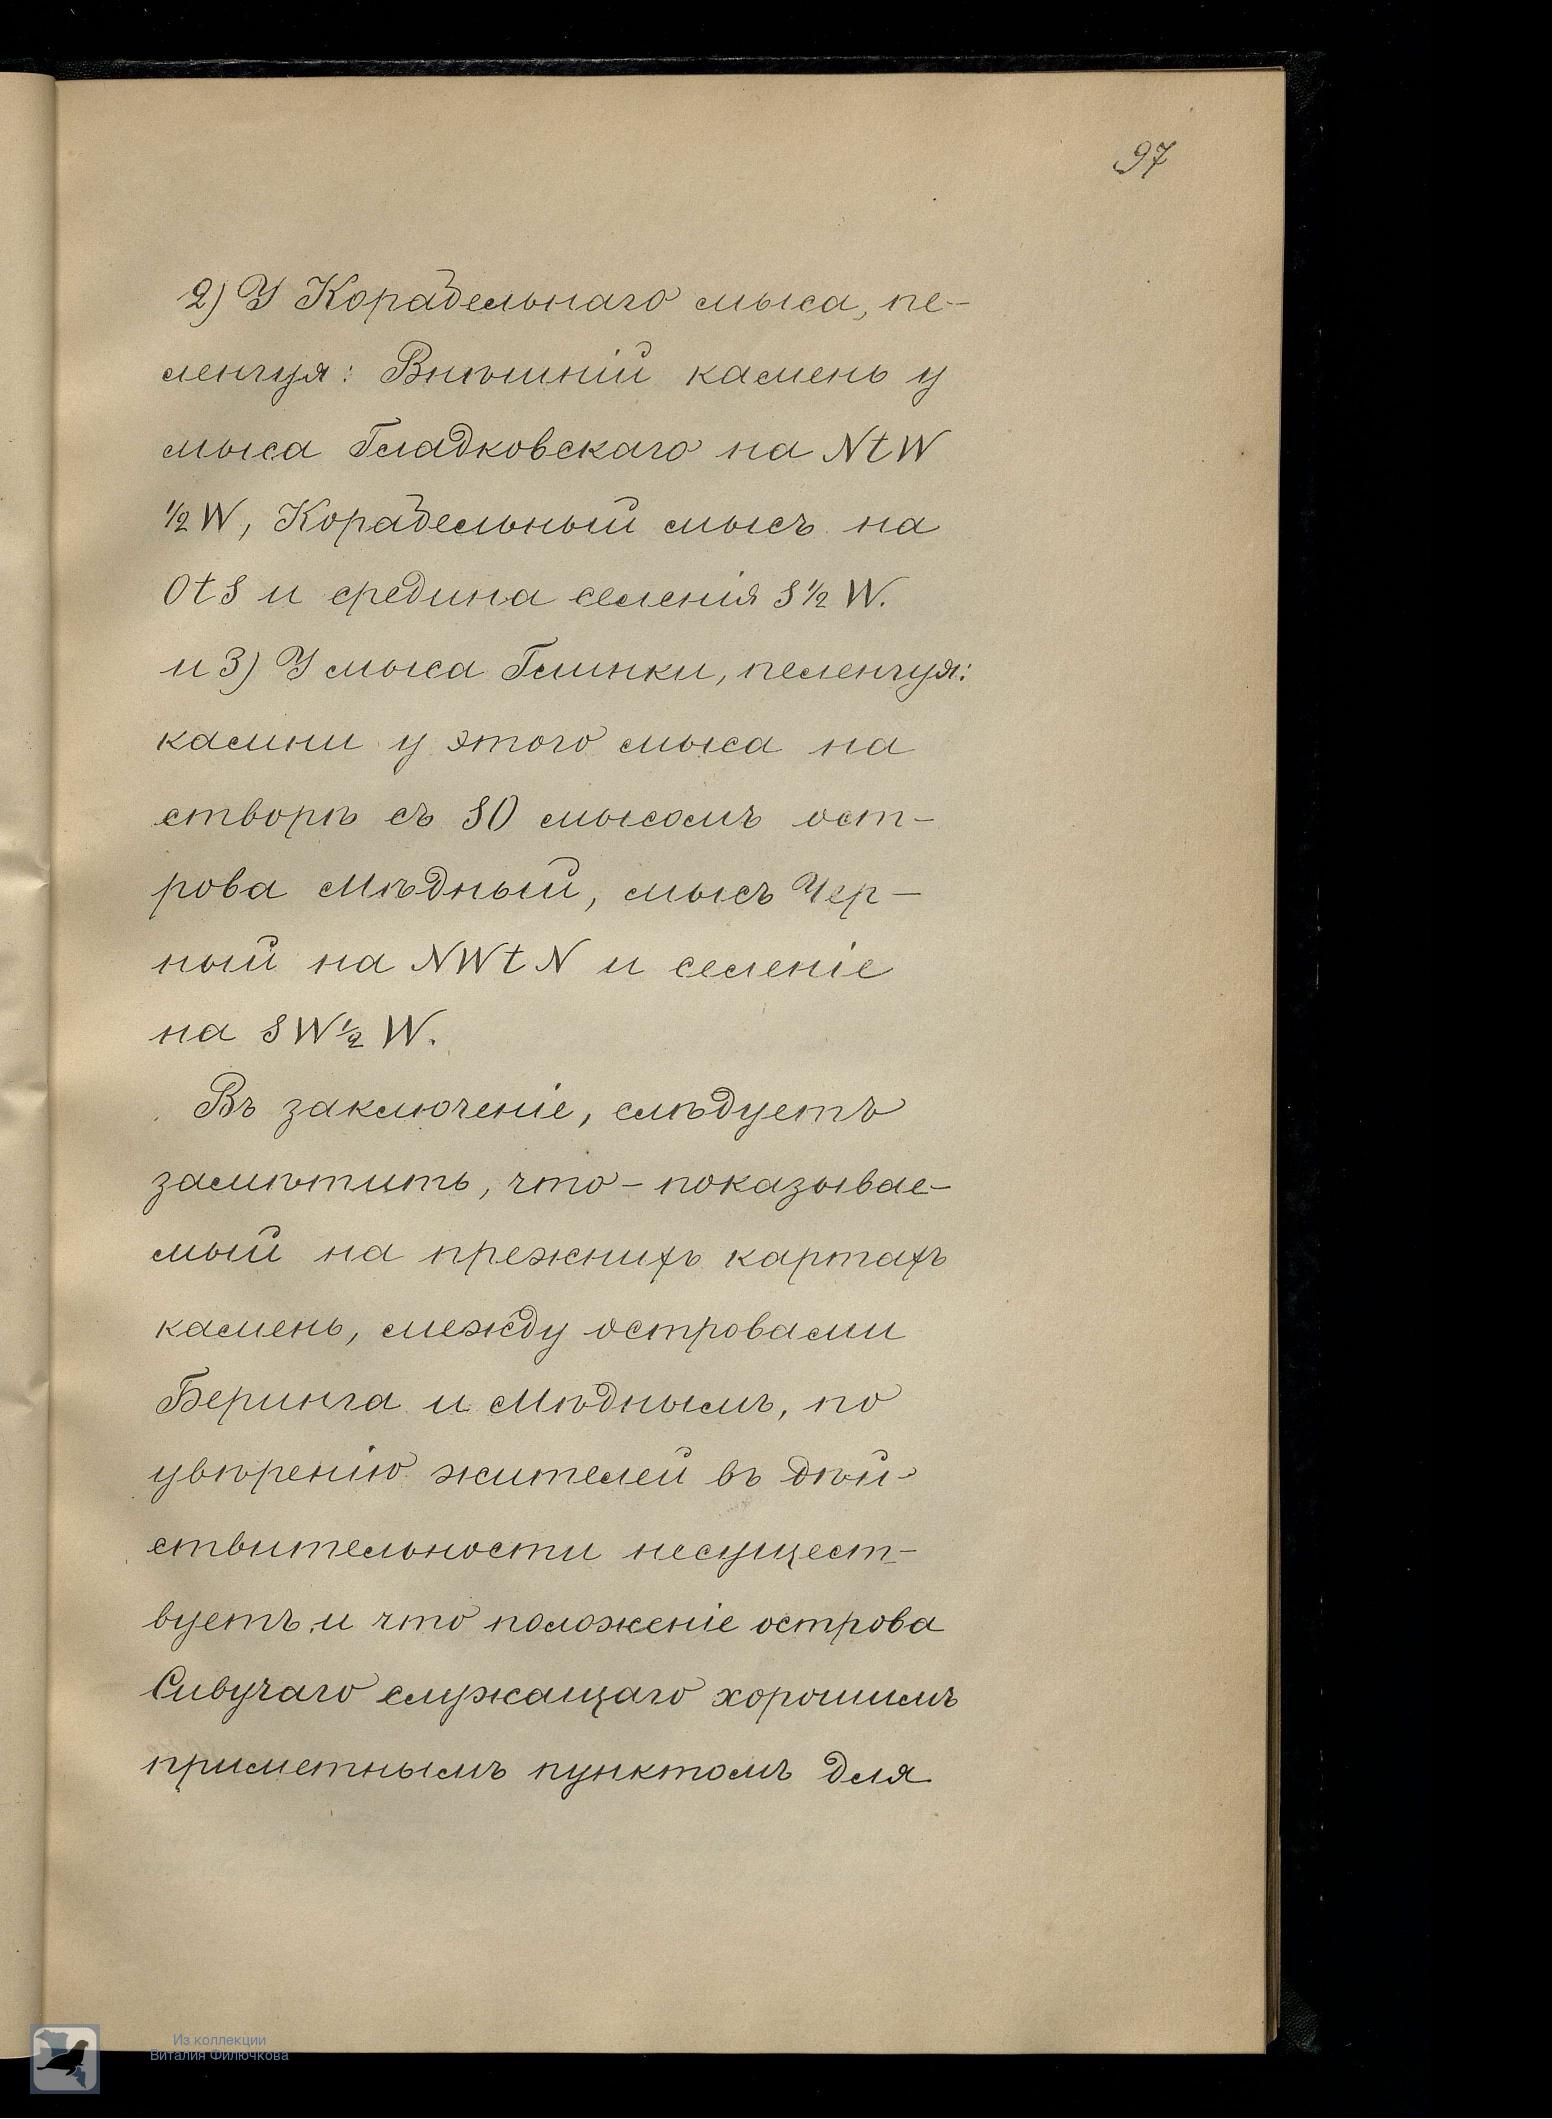 97
2) У Корабельнаго мыса, пе-
ленгуя: Внѣшній камень у
мыса Гладковскаго на NtW
½ W, Корабельный мысъ на
OtS и средина селенія S ½ W.
и 3) У мыса Глинки, пеленгуя:
камни у этого мыса на
створѣ съ SO мысомъ ост-
рова Мѣдный, мысъ Чер-
ный на NWtN и селеніе
на SW ½ W.
Въ заключеніе, слѣдуетъ
замѣтить, что - показывае-
мый на прежнихъ картахъ
камень, между островами
Беринга и Мѣднымъ, по
увѣренію жителей въ дѣй-
ствительности несущест-
вуетъ и что положеніе острова
Сивучаго служащаго хорошимъ
приметнымъ пунктомъ для
Из коллекции
Виталия Филючкова